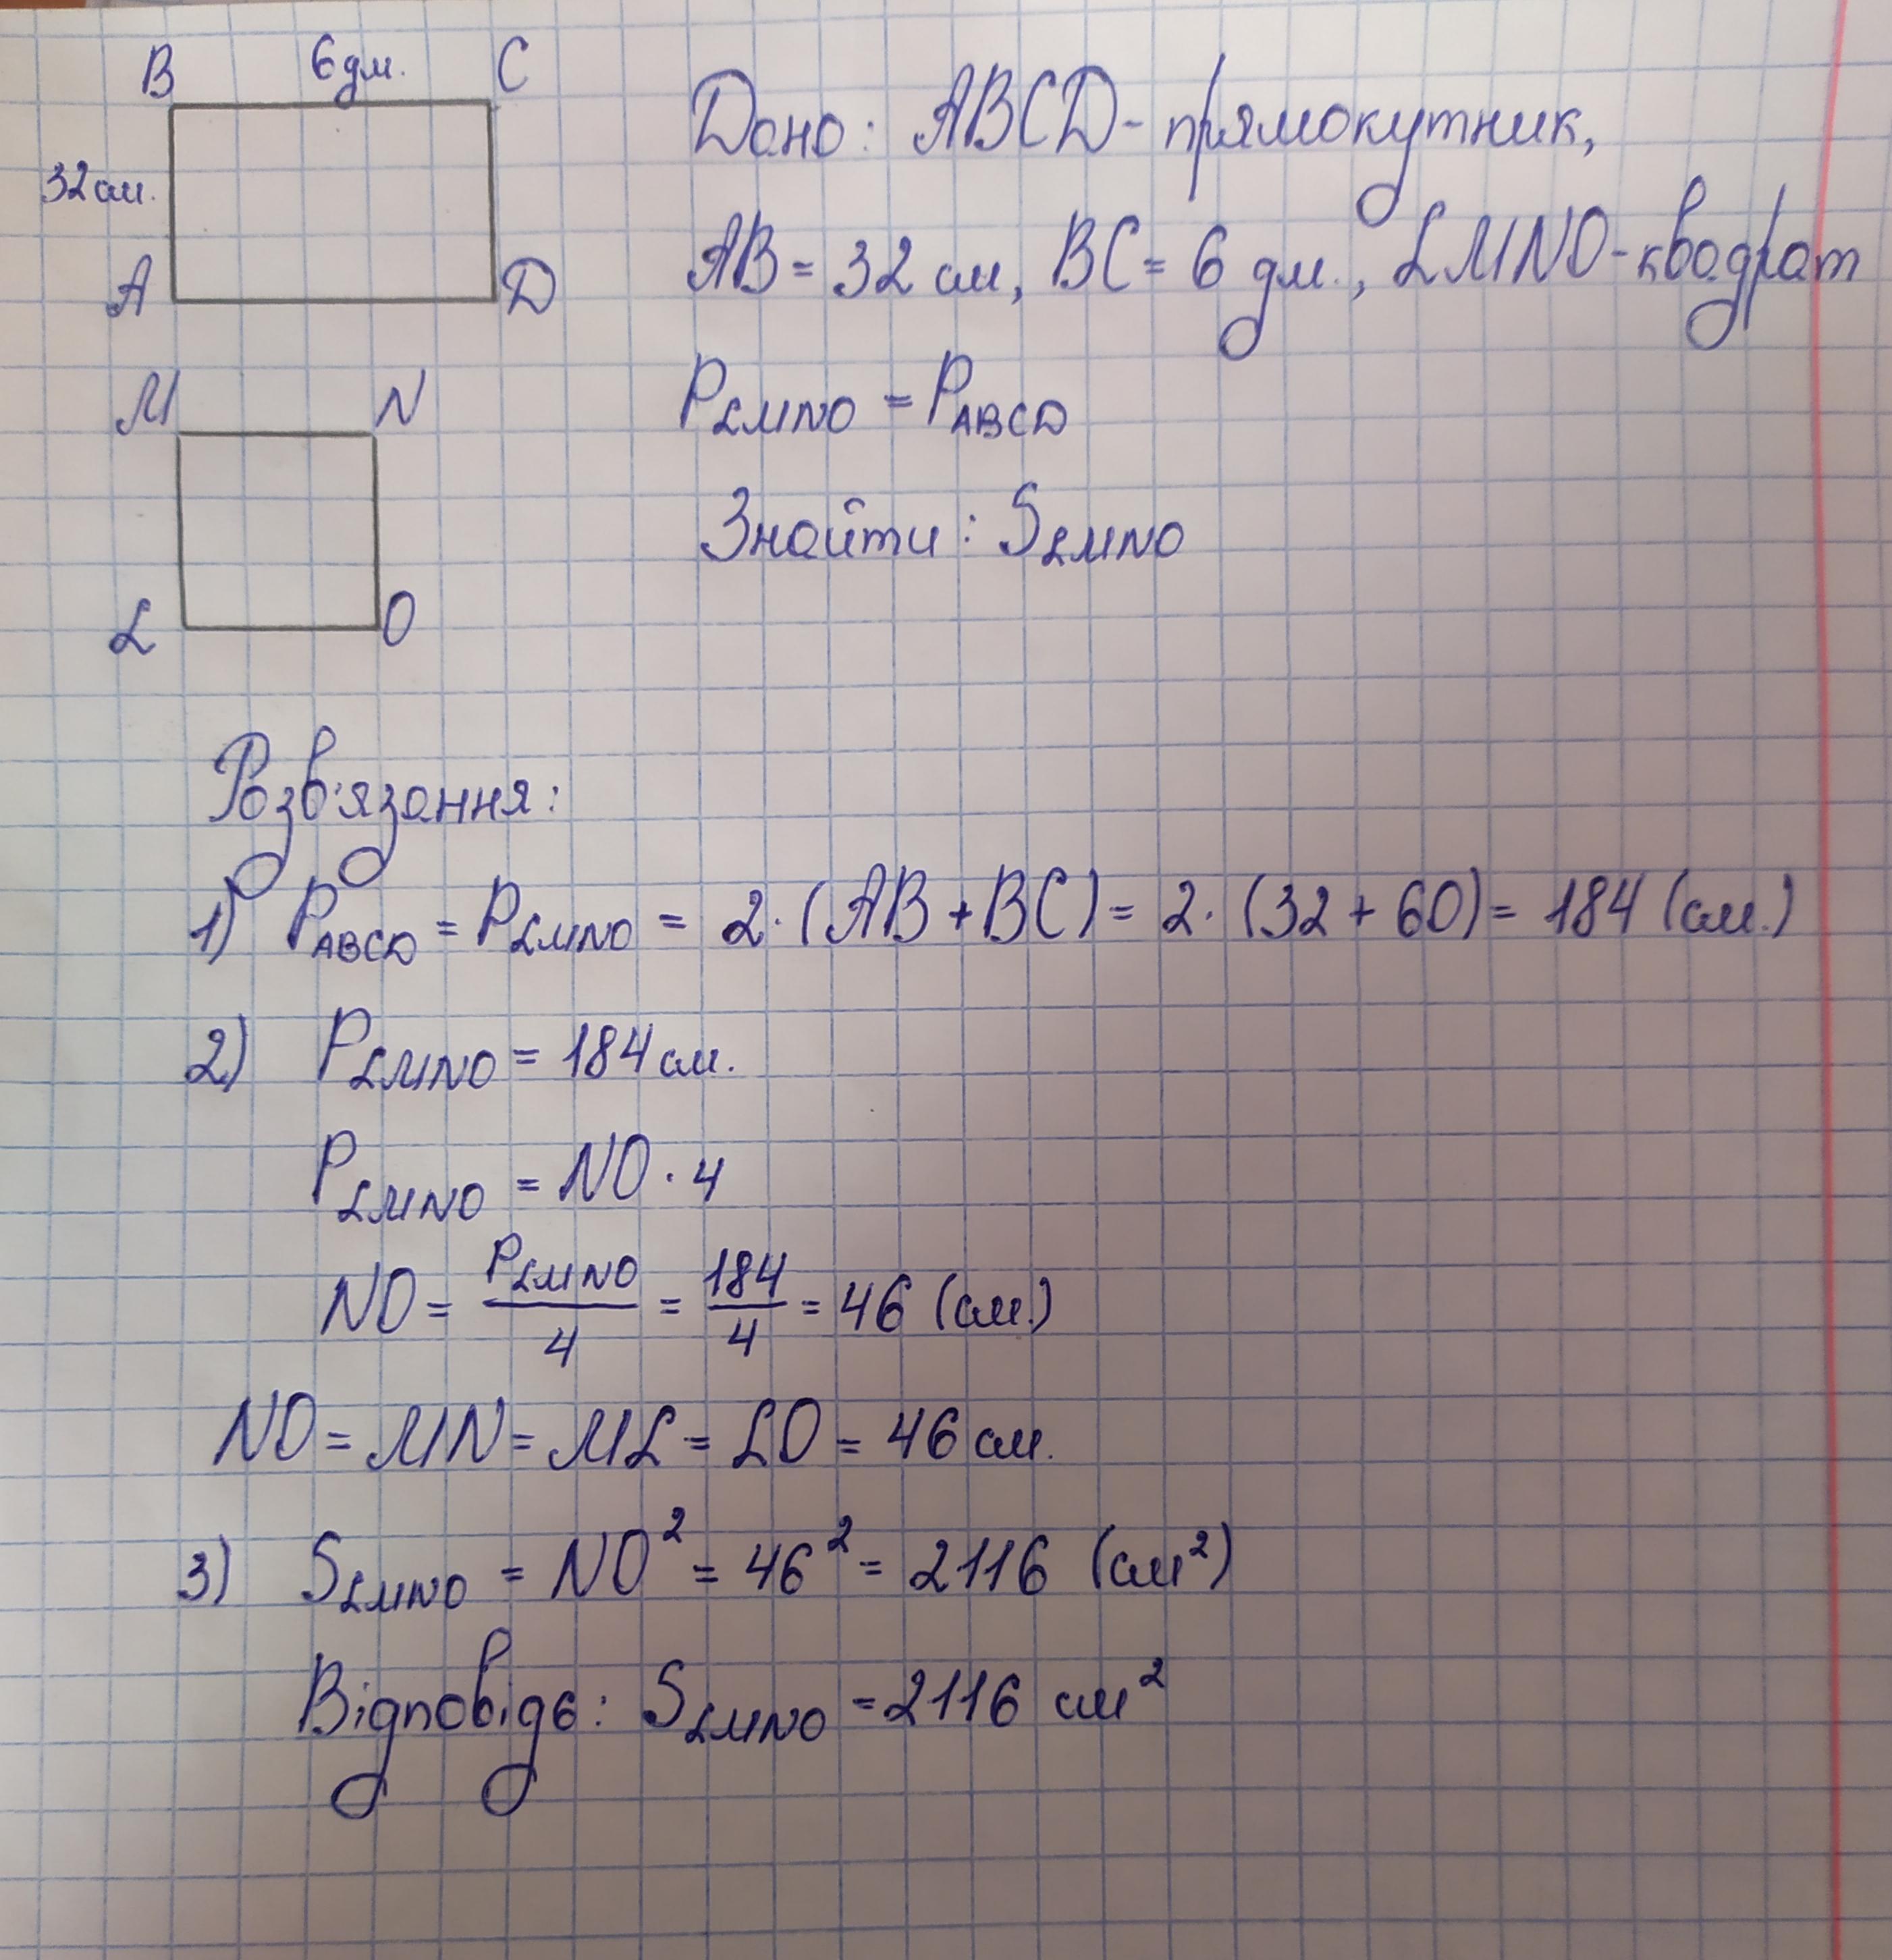 B 6 дм. C
32 см.
A D
Дано: ABCD - прямокутник,
AB = 32 см, BC = 6 дм., LMNO - квадрат
P LMNO = P ABCD
Знайти: S LMNO
M N
L O
Розв'язання:
1) P ABCD = P LMNO = 2 · (AB + BC) = 2 · (32 + 60) = 184 (см.)
2) P LMNO = 184 см.
P LMNO = NO · 4
NO = P LMNO / 4 = 184 / 4 = 46 (см.)
NO = MN = ML = LO = 46 см.
3) S LMNO = NO² = 46² = 2116 (см²)
Відповідь: S LMNO = 2116 см²